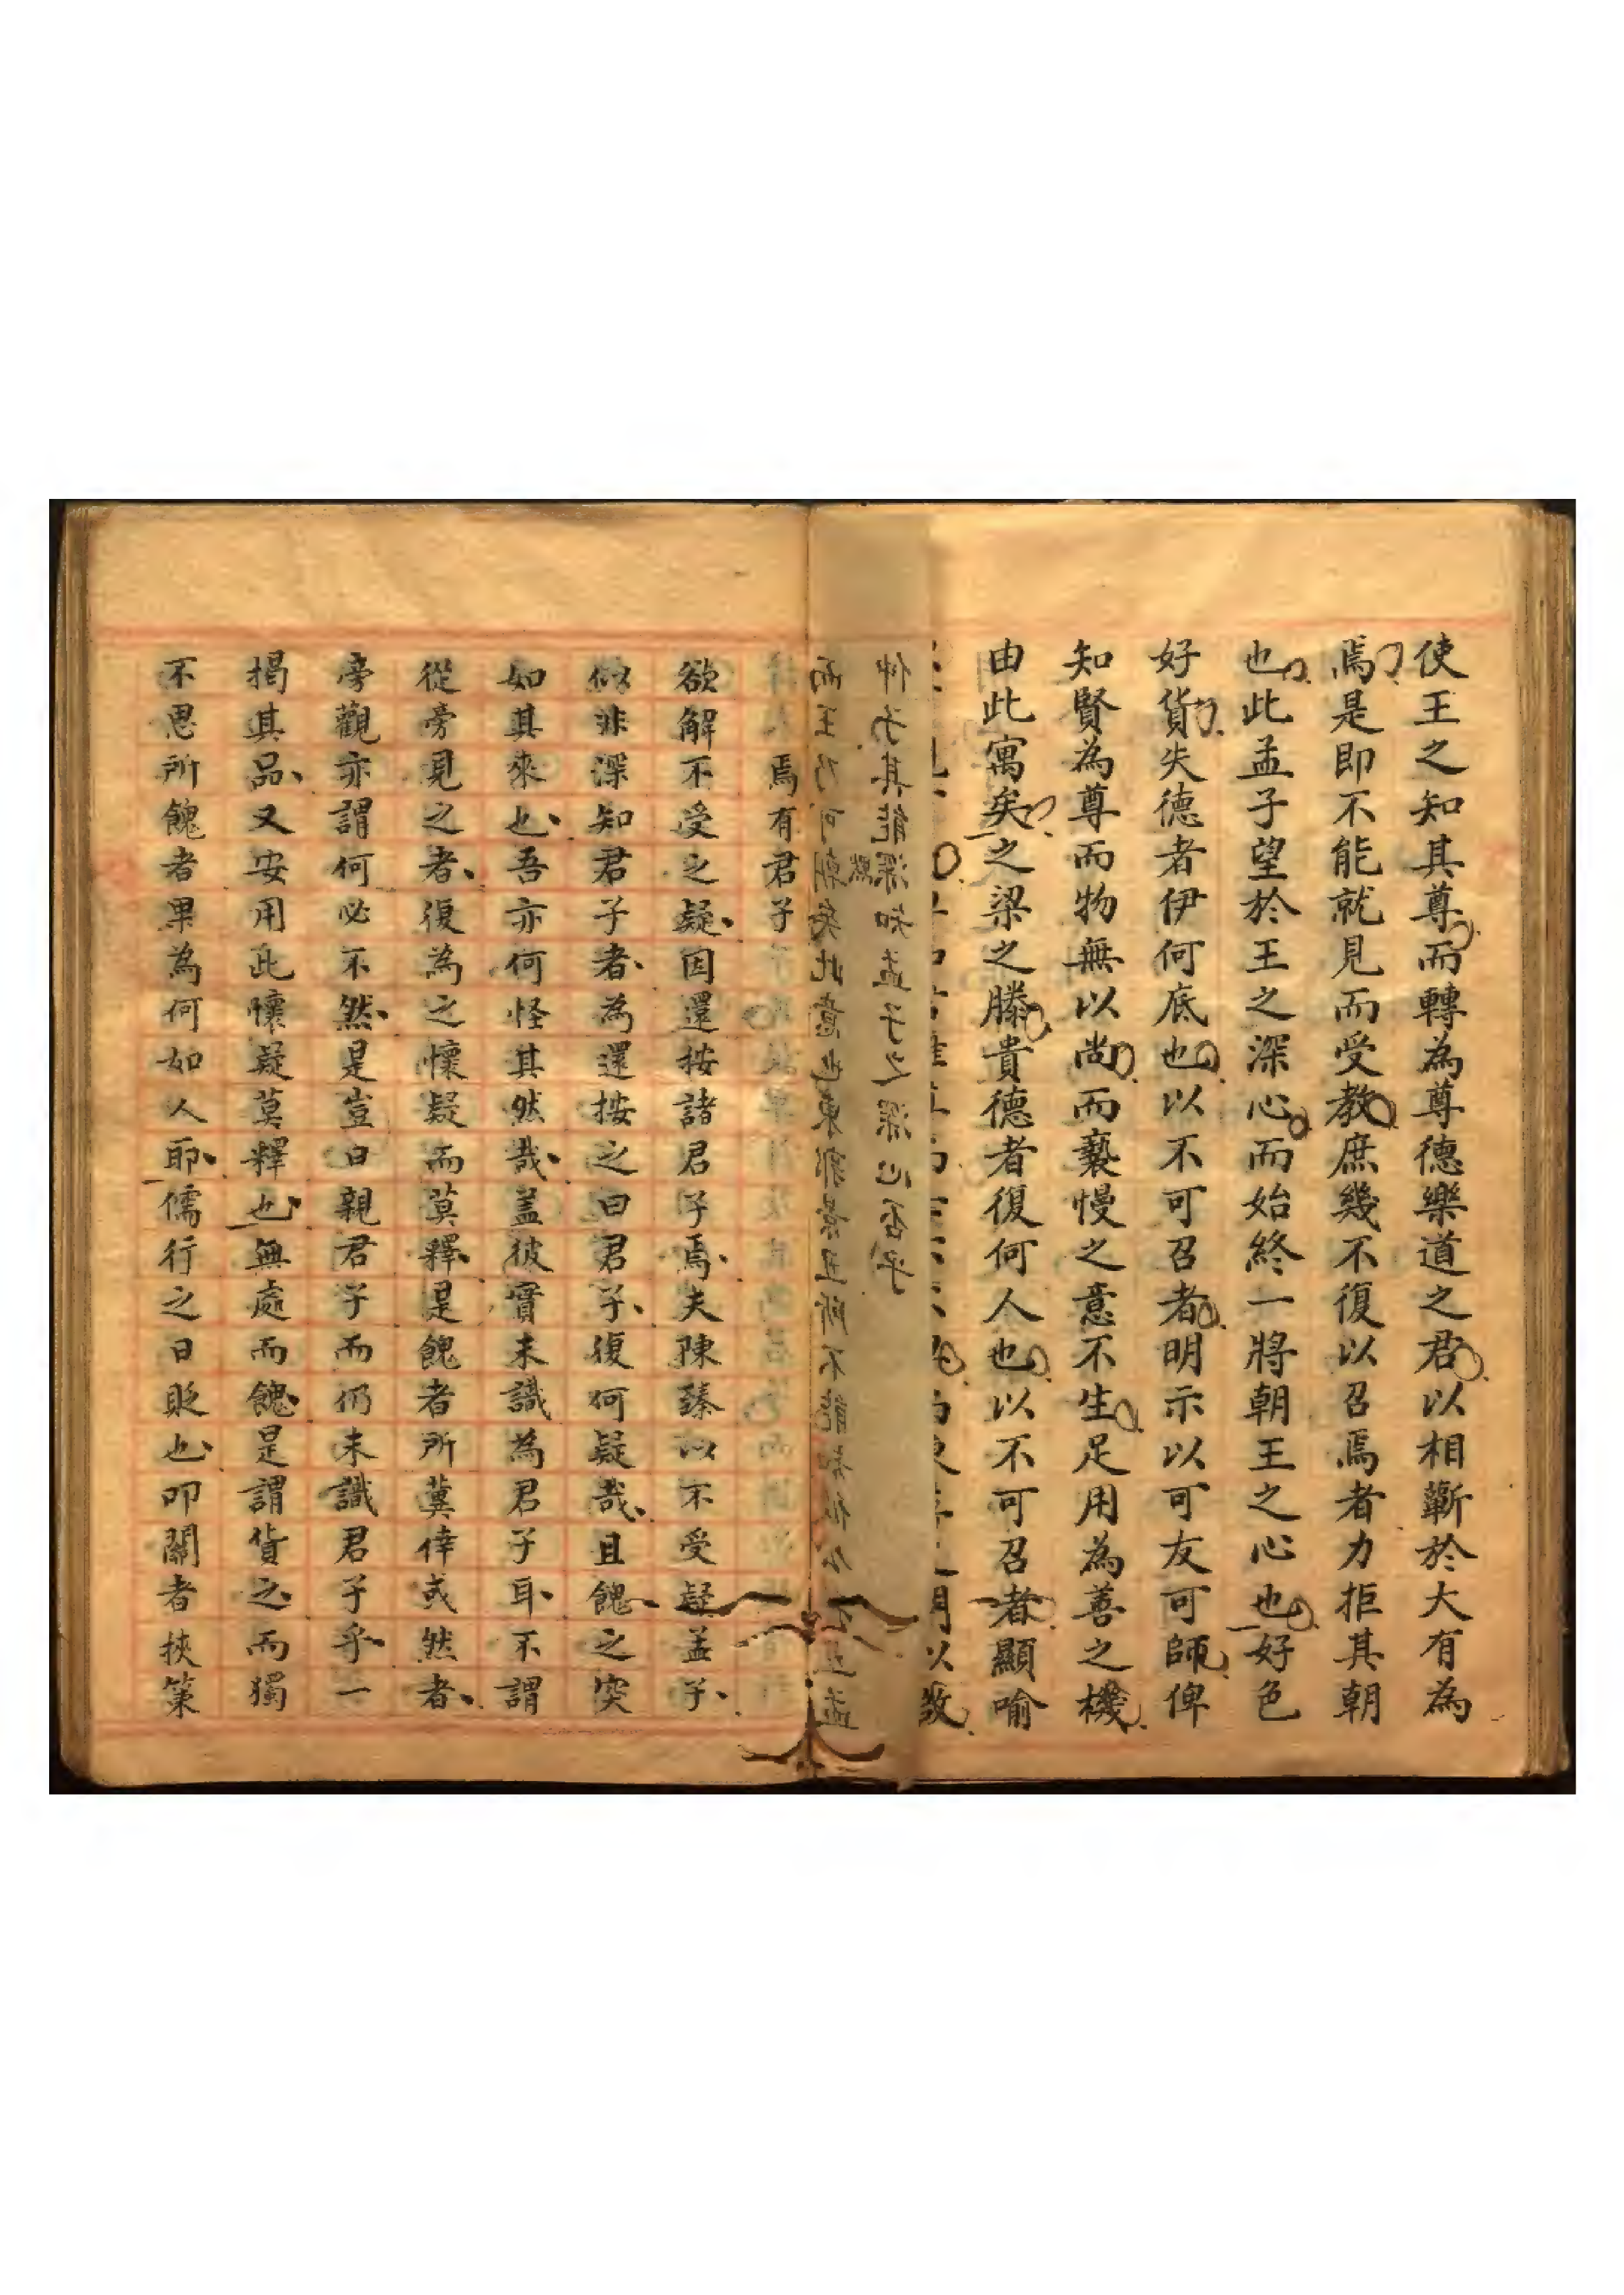 使王之知其尊而轉為尊德樂道之君以相蘄於大有為
焉是即不能就見而受教庶幾不復以召焉者力拒其朝
也此孟子望於王之深心而始終一將朝王之心也好色
好貨失德者伊何底也以不可召者明示以可友可師俾
知賢為尊而物無以尚而褻慢之意不生足用為善之機
由此寓矣之梁之滕貴德者復何人也以不可召者顯喻
以致
仲子其能深知孟子之深心否乎
而王乃可朝矣此意也東郭景丑所不能知
焉有君子
欲解不受之疑因還按諸君子焉夫陳臻以不受疑孟子
似非深知君子者為還按之曰君子復何疑哉且餽之突
如其來也吾亦何怪其然哉盖彼實未識為君子耳不謂
從旁見之者復為之懷疑而莫釋是餽者所冀倖或然者
旁觀亦謂何必不然是豈曰親君子而仍未識君子乎一
揭其品又安用此懷疑莫釋也無處而餽是謂貨之而獨
不思所餽者果為何如人耶儒行之日貶也叩關者挾策